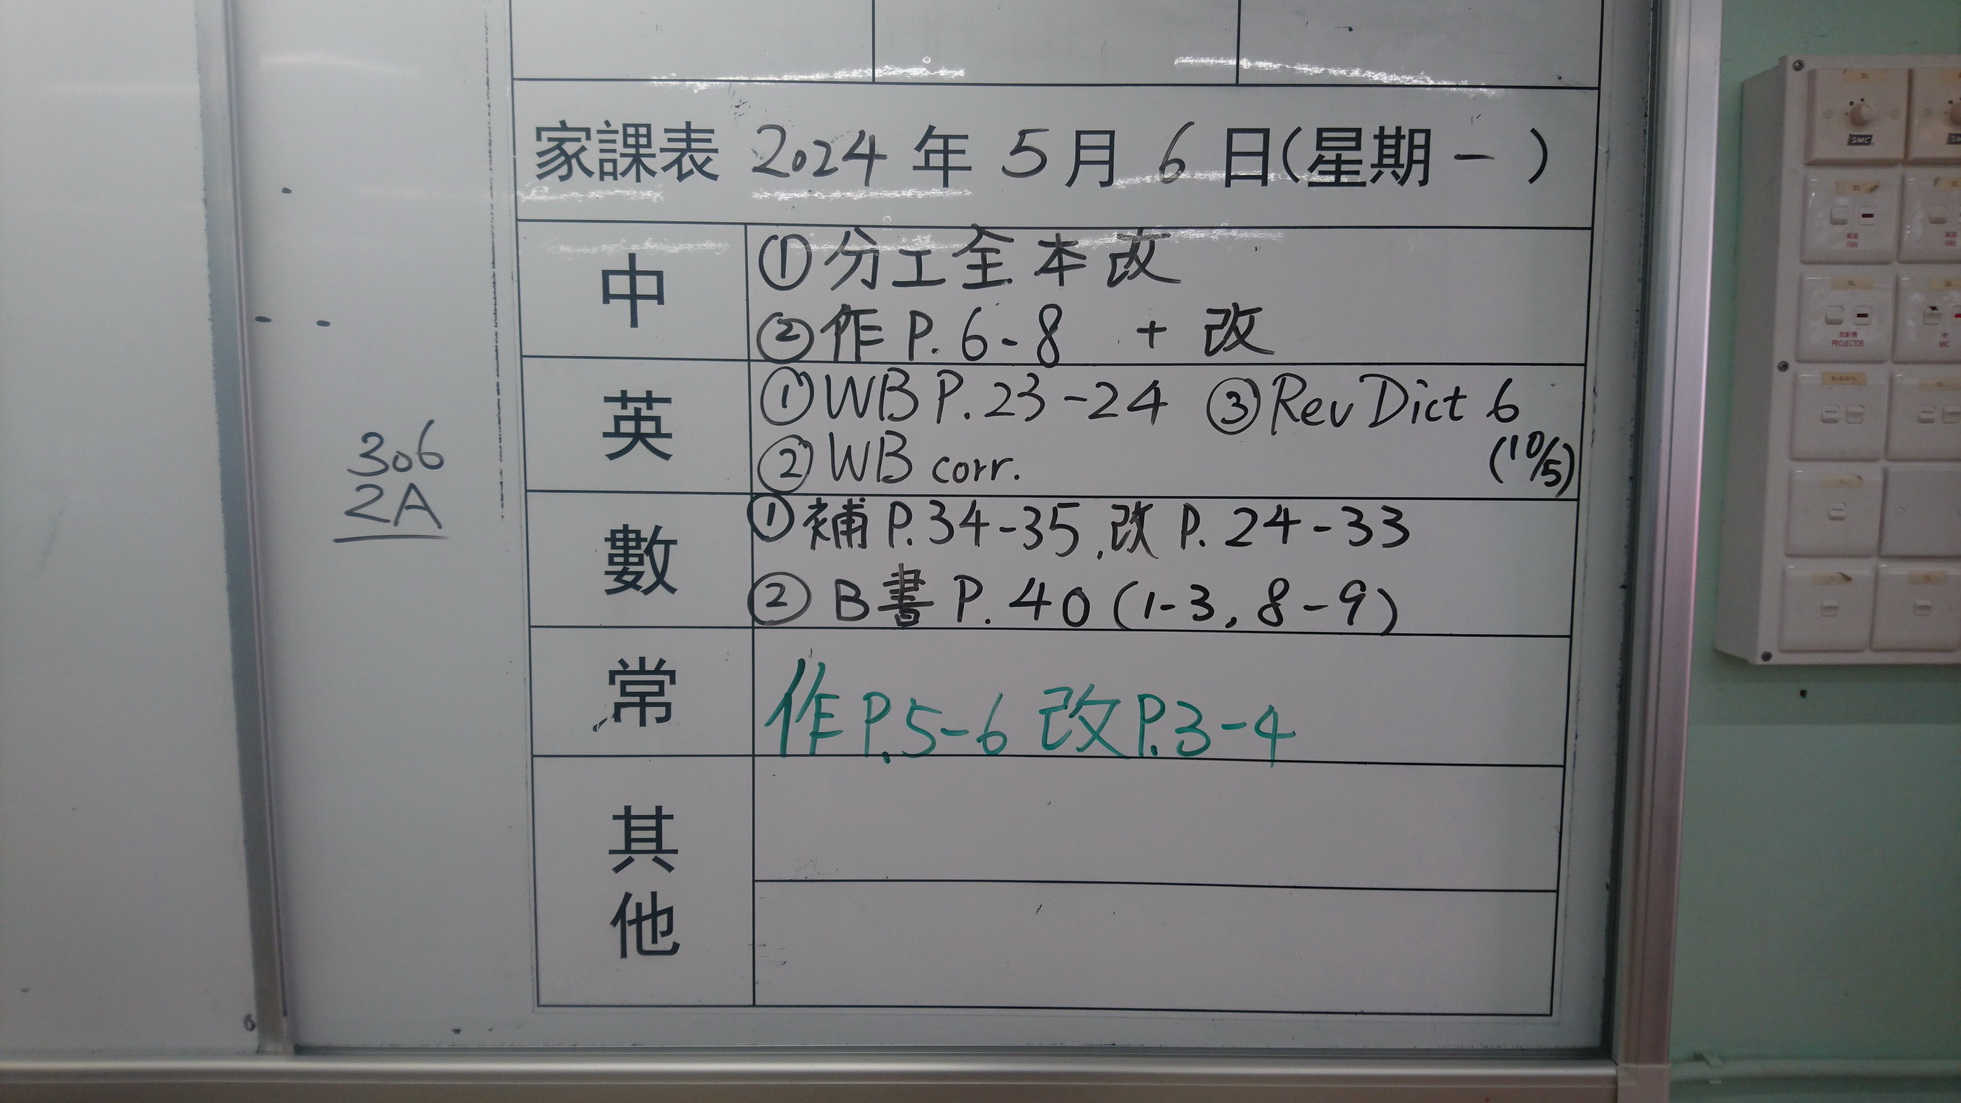 家課表 2024 年 5 月 6 日(星期一)
中
①分工全本改
②作 P. 6-8 + 改
英
①WB P. 23-24 ③Rev Dict 6
②WB corr. (10/5)
數
①補 P. 34-35, 改 P. 24-33
②B書 P. 40 (1-3, 8-9)
常
作 P.5-6 改 P.3-4
其他
306
2A
SMC
FAN
PROJECTOR